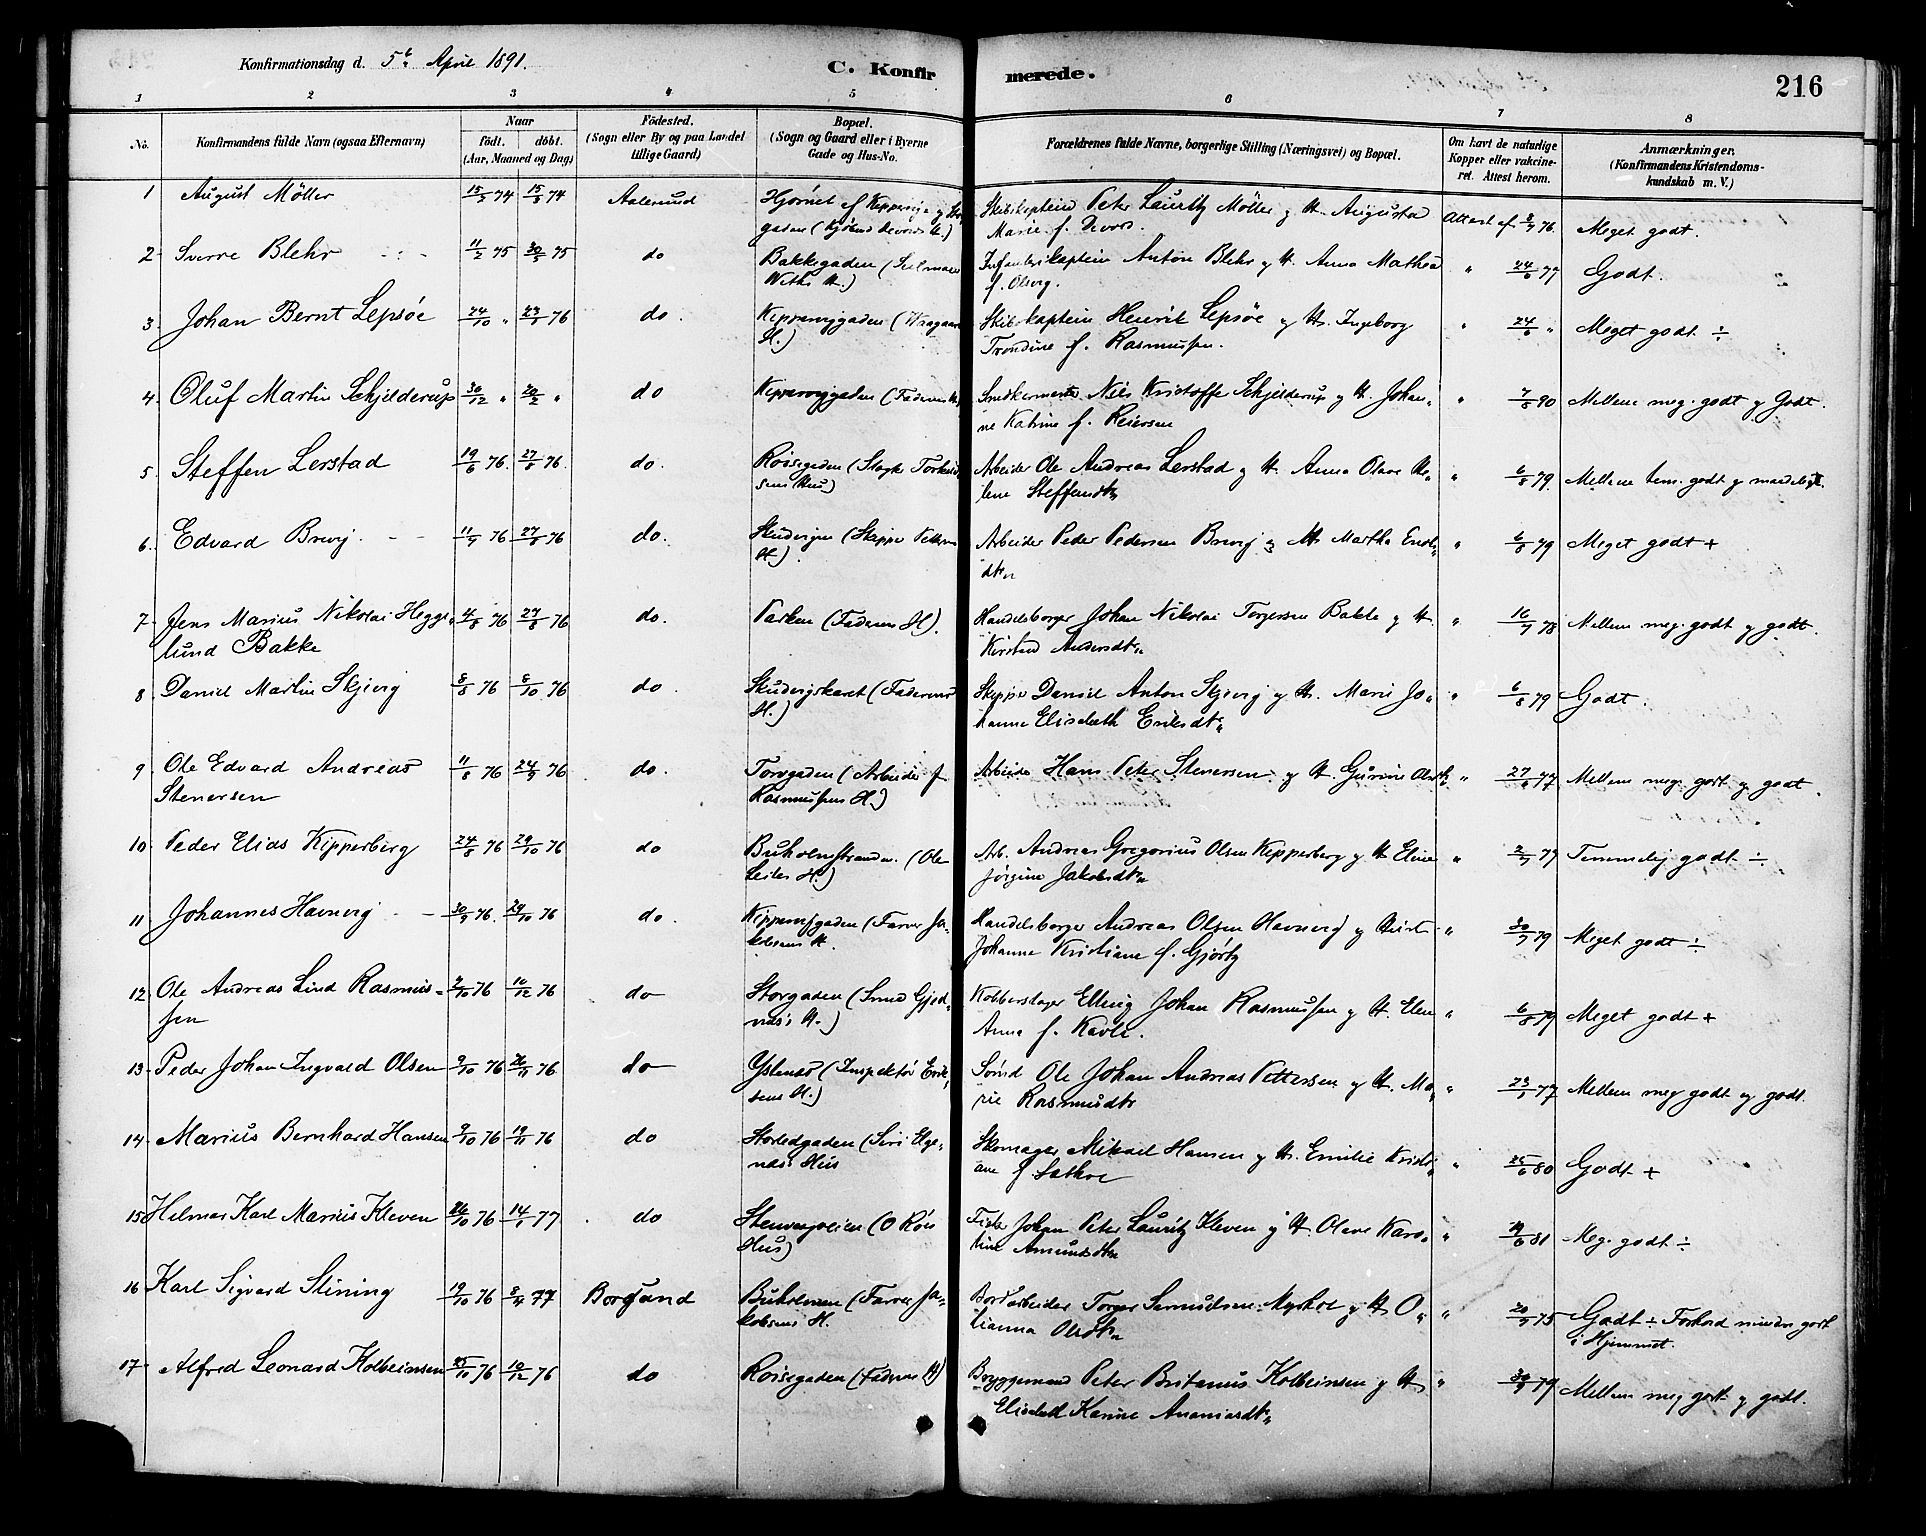 Konfirmationsdag d. 5te April 1891.
C. Konfirmerede.
216
1 2 3 4 5 6 7 8
No.
Konfirmandens fulde Navn (ogsaa Efternavn)
Naar
födt. döbt.
(Aar, Maaned og Dag)
Födested.
(Sogn eller By og paa Landet
tillige Gaard)
Bopæl.
(Sogn og Gaard eller i Byerne
Gade og Hus-No.
Forældrenes fulde Navne, borgerlige Stilling (Næringsvei) og Bopæl.
Om havt de naturlige
Kopper eller vakcine-
ret. Attest herom.
Anmærkninger.
(Konfirmandens Kristendoms-
kundskab m. V.)
1 August Möller 74 74 Aalesund Hjørnet af
Skibskaptein Peter Lauritz Möller og H. Augusta
Marie f. Devold. Attest af 76 Meget godt.
2 Sverre Blehr 11/2 75 75 do Bakkegaden
Infanterikaptein Anton Blehr og H. Anna Mathea
f. Olsvig. " 24/6 77 Godt.
3 Johan Bernt Lepsöe 24/10 " 76 do. Kipperviggaden
H.)
Skibskaptein Henrik Lepsöe og H. Ingeborg
Trondine f. Rasmussen. " 24/6 " Meget godt ÷
4 Oluf Martin Schjelderup 30/12 " 20/2 " do Kipperviggaden (Faderens H.)
Snedkermester Niels Kristoffer Schjelderup og H. Johan-
ne Katrine f. Reiersen " 7/8 90 Mellem meg. godt og Godt.
5 Steffen Lerstad 19/6 76. 27/8 76. do. Röisegaden
sens Hus)
Arbeider Ole Andreas Lerstad og H. Anna Olave
lene Steffensdtr " 6/8 79. Mellem tem. godt og maadeligt.
6. Edvard Brevig. 76 27/8 76 do. Skudvigen (Skipper Pettersens
H.)
Arbeider Peder Pedersen Brevig og H. Martha
dtr " 6/8 79 Meget godt +
7 Jens Marius Nikolai Hegge-
lund Bakke 4/8 76 27/8 76 do. Parken (Faderens H).
Handelsborger Johan Nikolai Torgersen Bakke og H.
Kirstine Andersdtr " 78 Mellem meg. godt og godt.
8 Daniel Martin Skjervig 8/8 76 8/10 76 do. (Faderens
H.)
Skipper Daniel Anton Skjervig og H. Marie Jo-
hanne Elisabeth Eriksdtr " 6/8 79 Godt.
9 Ole Edvard Andreas
Stenersen 11/8 76 24/9 76 do. Torvgaden (Arbeider f
Rasmussens H.)
Arbeider Hans Peter Stenersen og H. Gurine Olsdtr " 77 Mellem meg. godt og godt.
10 Peder Elias Kipperberg 24/8 76 29/10 76 do Buholmstranden (Ole
H.)
Arb. Andreas Gregorius Olsen Kipperberg og H. Eline
Jörgine Jakobsdtr " 79 Temmelig godt ÷
11 Johannes Havnevig 30/9 76. 29/10 76 do. Kippervigaden (Farver Ja-
kobsens H.
Handelsborger Andreas Olsen Havnevig og Hust.
Johanne Kristiane f. Gjörtz " 79 Meget godt ÷
12 Ole Andreas Lind Rasmus-
sen 76 10/12 76 do Storgaden (Smed
H.)
Kobberslager Elling Johan Rasmussen og H. Elen
Anna f. Kavli. " 6/8 79 Meget godt +
13 Peder Johan Ingvald Olsen 9/10 76 26/11 76 do Ystenes (Inspektör Erik-
sens H.)
Sömd Ole Johan Andreas Pettersen og H. Ma-
rie Rasmusdtr " 77 Mellem meg godt og godt.
14 Marius Bernhard Hansen 9/10 76 19/11 76 do
Hus
Skomager Mikael Hansen og H. Emilie Kristi-
ane f. " 25/6 80 Godt +
15 Hilmar Karl Marius Kleven 26/10 76 14/1 77 do (O Röis
Hus)
Fisker Johan Peter Lauritz Kleven og H. Olave Karo-
line Amundsdtr " 81 Meg. godt ÷
16 Karl Sigvard Stening 19/10 76 8/4 77 Borgund Buholmen (Farver Ja-
kobsens H.
Bordarbeider Torger og H. O-
lianna Olsdtr " 75 Godt ÷ Forhold mindre godt
i Hjemmet.
17 Alfred Leonard Kolbeinsen 25/10 76 10/12 76 do Röisegaden (Faderens H)
Bryggemand Peter Britanus Kolbeinsen og H.
Elisabeth Karine Ananiasdtr " 79 Mellem meg godt og godt.